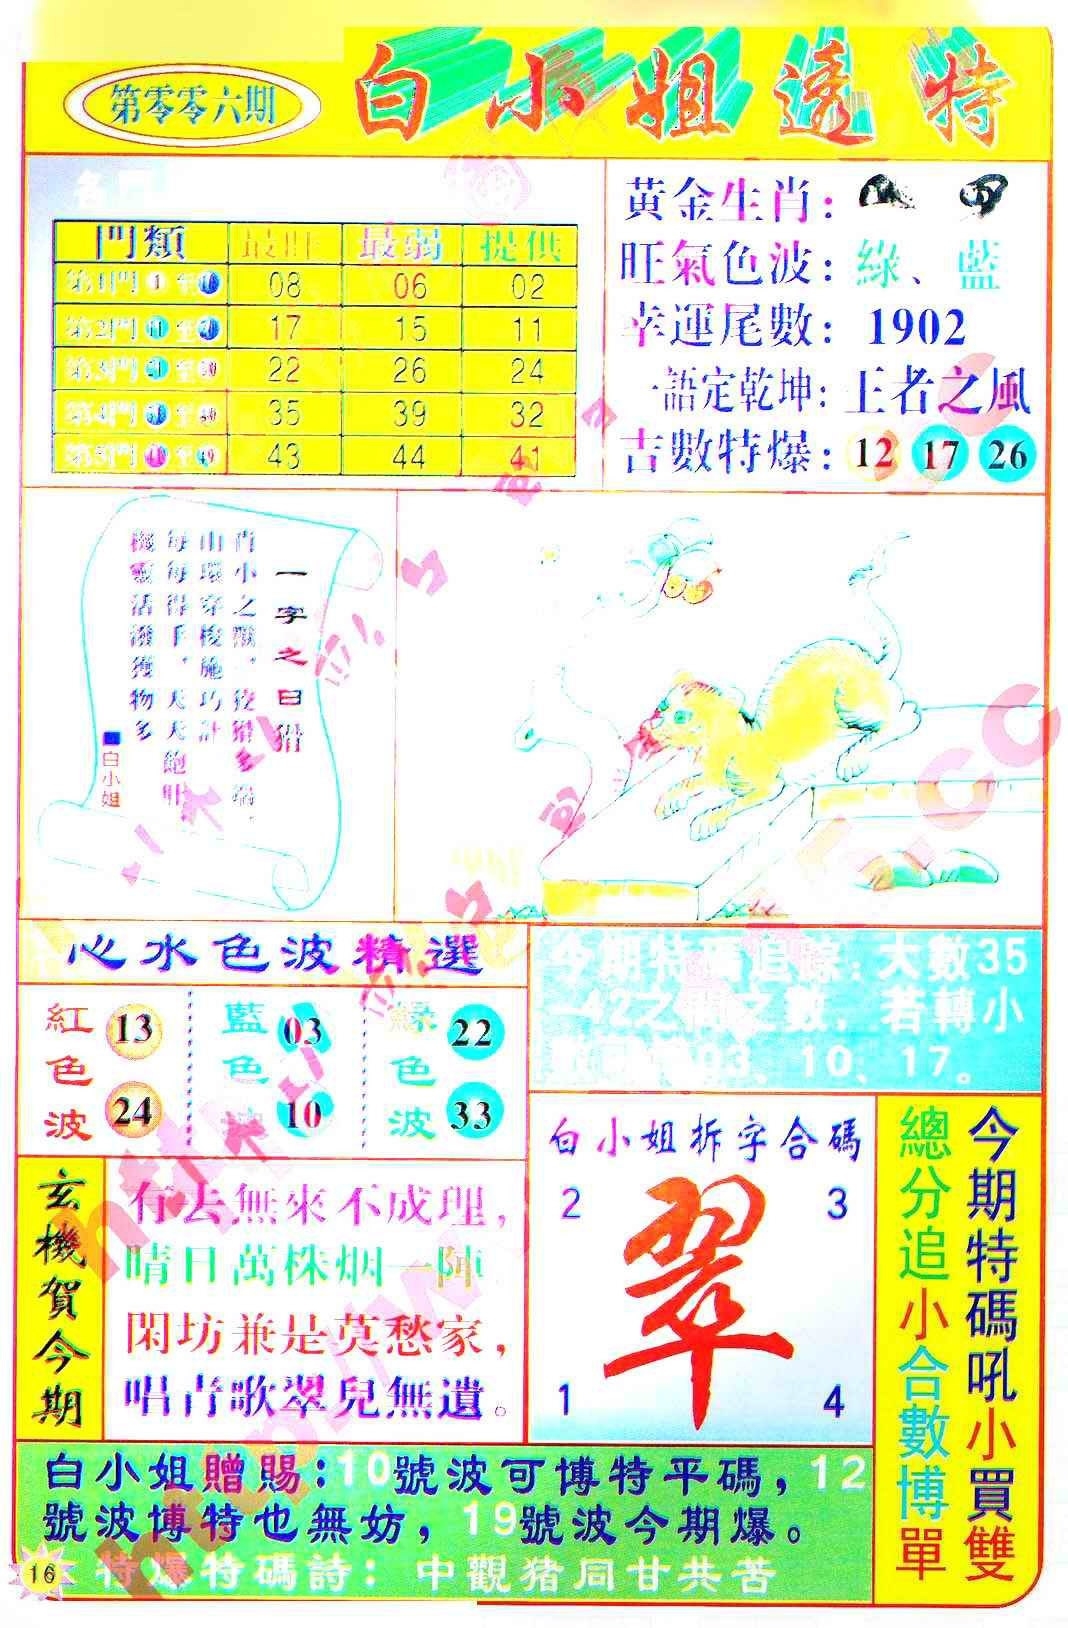 第零零六期
白小姐透特
門類 最旺 最弱 提供
第1門 1至10 08 06 02
第2門 11至20 17 15 11
第3門 22 26 24
第4門 35 39 32
第5門 至49 43 44 41
黃金生肖：
旺氣色波：綠、藍
幸運尾數：1902
一語定乾坤：王者之風
吉數特爆：12 17 26
一字之曰猾
肖小之獸，狡猾多端，
山環穿梭施巧計
每每得手，天天飽肚
機靈活潑獲物多
白小姐
心水色波精選
紅色波 13 24
藍色波 03 10
綠色波 22 33
今期特碼追踪：大數35
-42之間之數，若轉小
03、10、17。
玄機賀今期
有去無來不成理，
晴日萬株烟一陣
閑坊兼是莫愁家，
唱青歌翠兒無遺。
白小姐拆字合碼
2 3
翠
1 4
今期特碼吼小買雙
總分追小合數博單
白小姐贈賜：10號波可博特平碼，12
號波博特也無妨，19號波今期爆。
特爆特碼詩：中觀猪同甘共苦
16